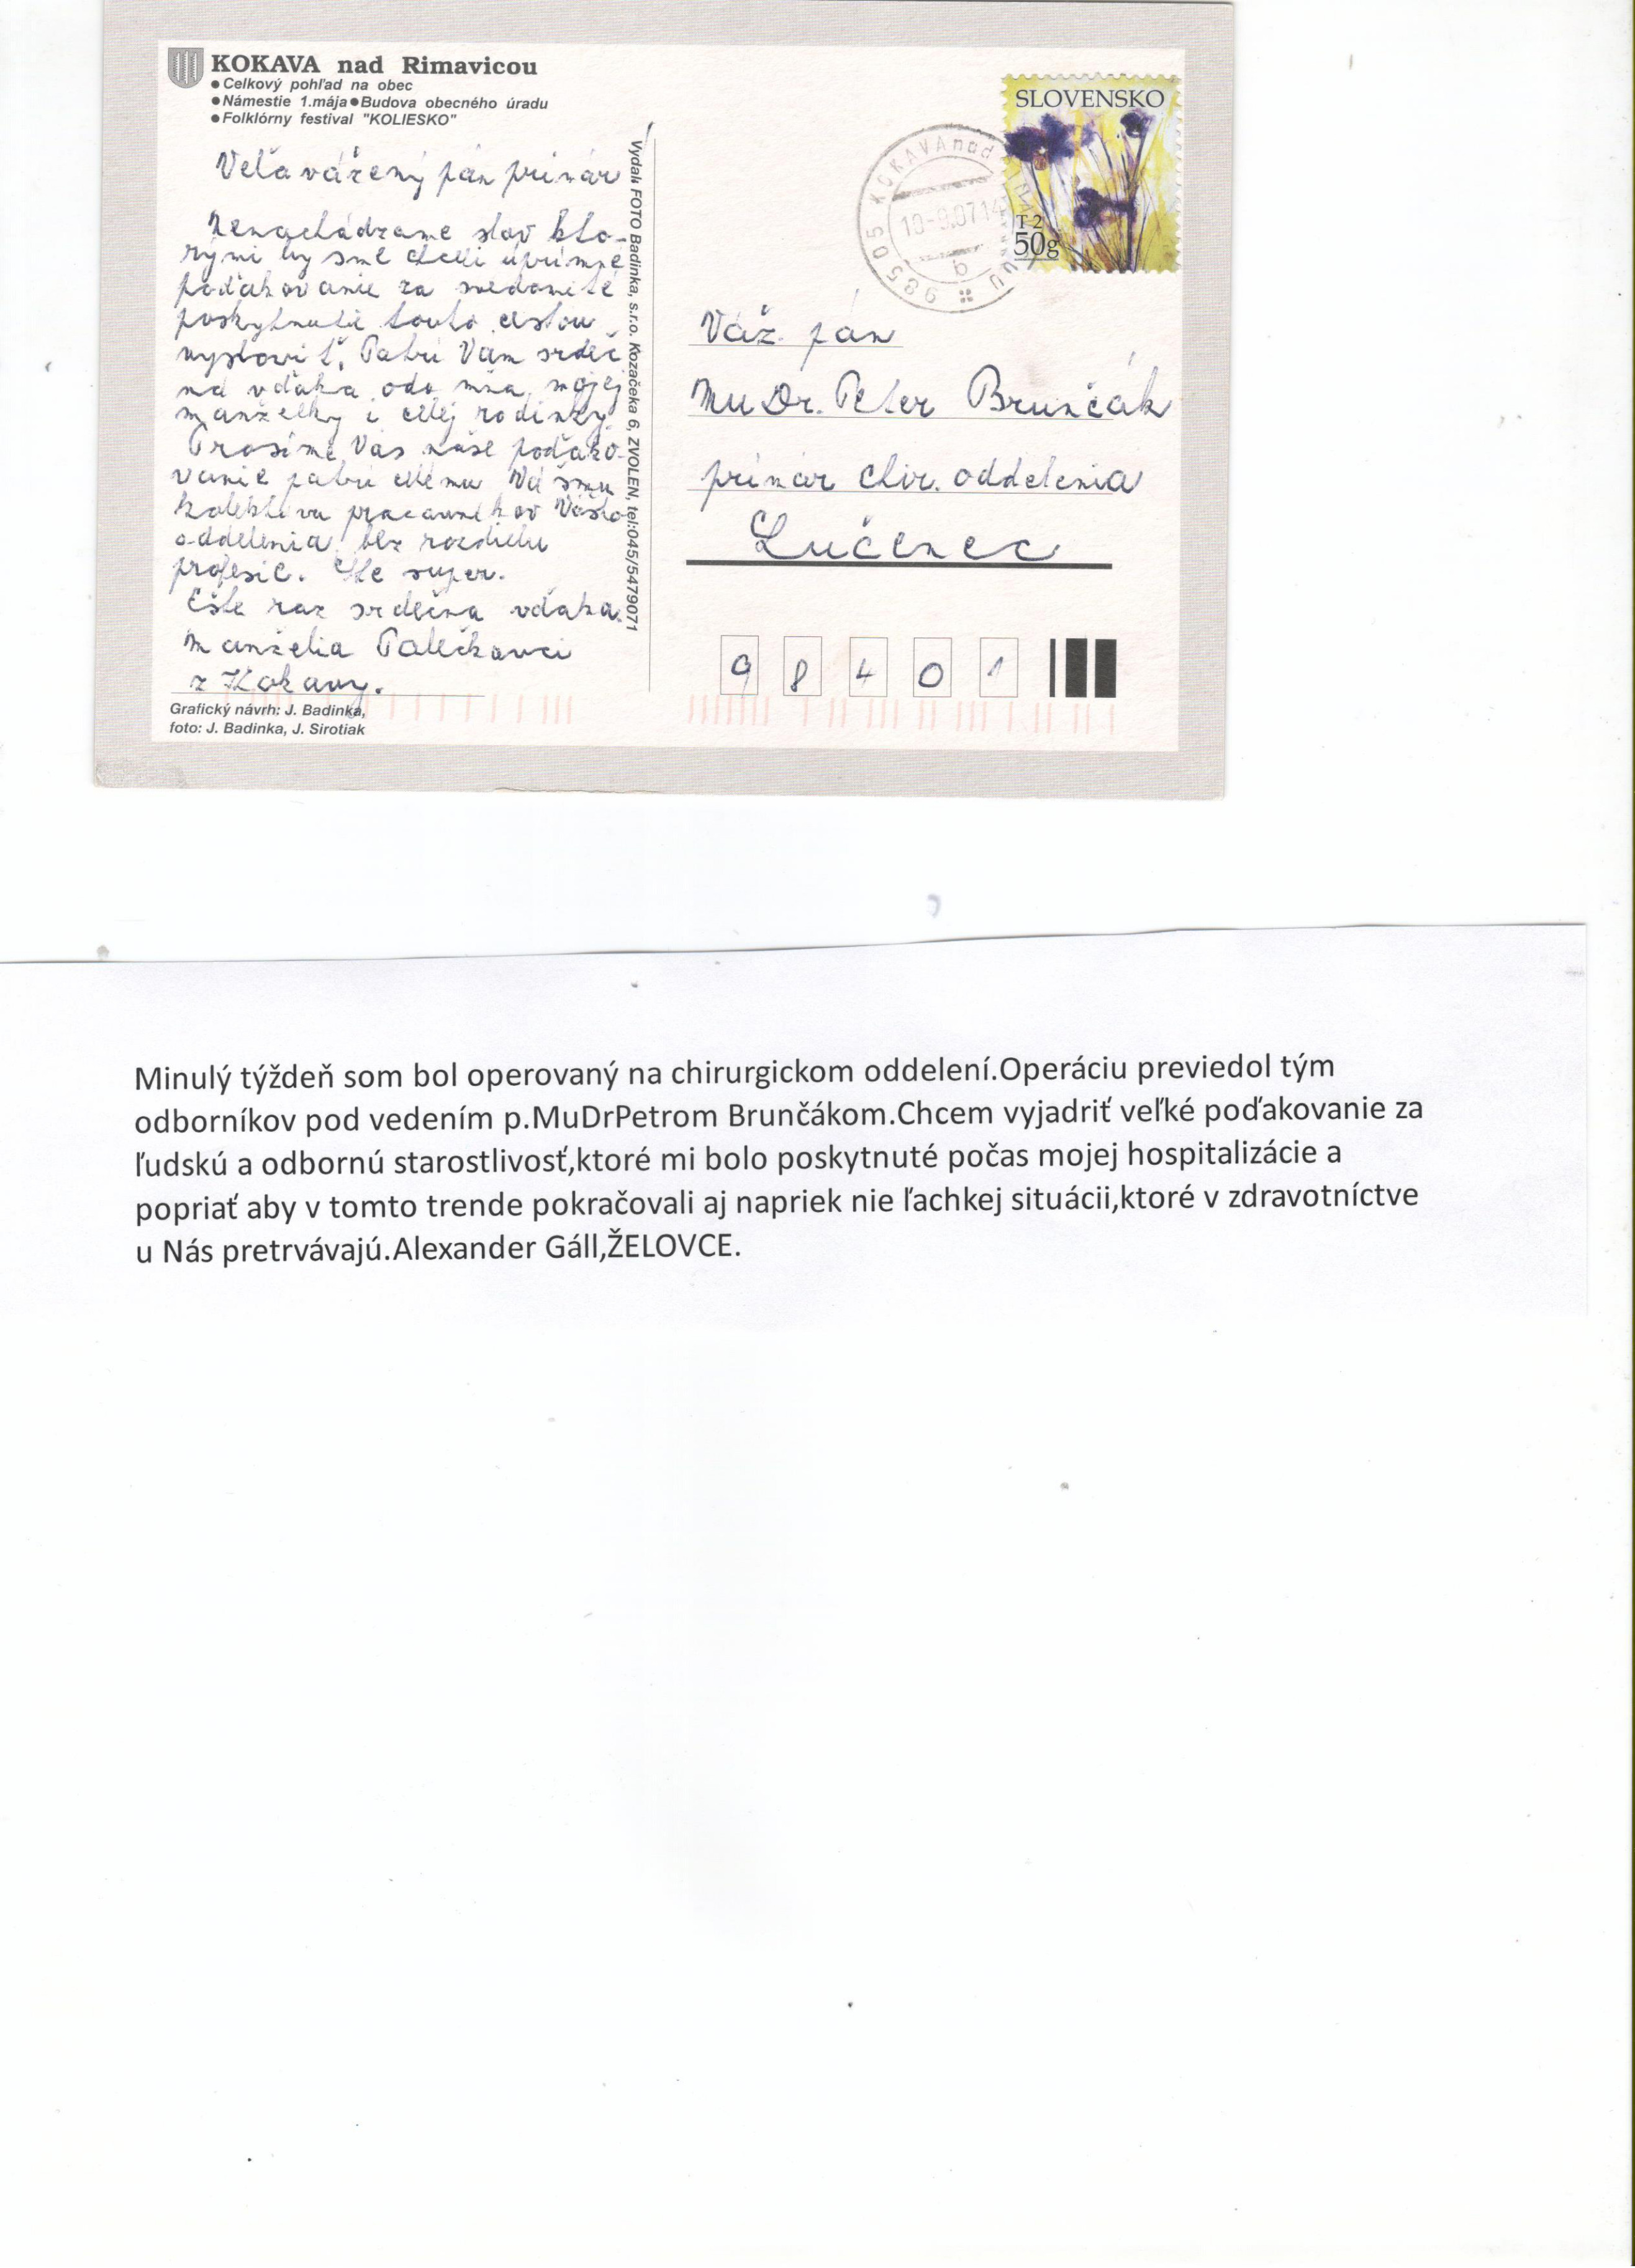 KOKAVA nad Rimavicou
•Celkový pohľad na obec
•Námestie 1.mája•Budova obecného úradu
•Folklórny festival "KOLIESKO"
Veľavážený pán primár
Nenachádzame slov kto-
rými by sme chceli úprimné
poďakovanie za svedomité
poskytnutie touto cestou
vysloviť. Patrí Vám srdeč
ná vďaka odo mňa, mojej
manželky i celej rodinky.
Prosíme Vás naše poďako-
vanie patrí celému Vášmu
kolektívu pracovníkov Vášho
oddelenia bez rozdielu
profesie. Ste super.
Ešte raz srdečna vďaka.
Manželia Palečkovci
z Kokavy.
Grafický návrh: J. Badinka,
foto: J. Badinka, J. Sirotiak
Vydali FOTO Badinka, s.r.o. Kozačeka 6, ZVOLEN, tel:045/5479071
SLOVENSKO
T2
50g
985 05 KOKAVA nad
10-9.07 14
b
Váž. pán
MuDr. Peter Brunčák
primár chir. oddelenia
Lučenec
9 8 4 0 1
Minulý týždeň som bol operovaný na chirurgickom oddelení.Operáciu previedol tým
odborníkov pod vedením p.MuDrPetrom Brunčákom.Chcem vyjadriť veľké poďakovanie za
ľudskú a odbornú starostlivosť,ktoré mi bolo poskytnuté počas mojej hospitalizácie a
popriať aby v tomto trende pokračovali aj napriek nie ľachkej situácii,ktoré v zdravotníctve
u Nás pretrvávajú.Alexander Gáll,ŽELOVCE.